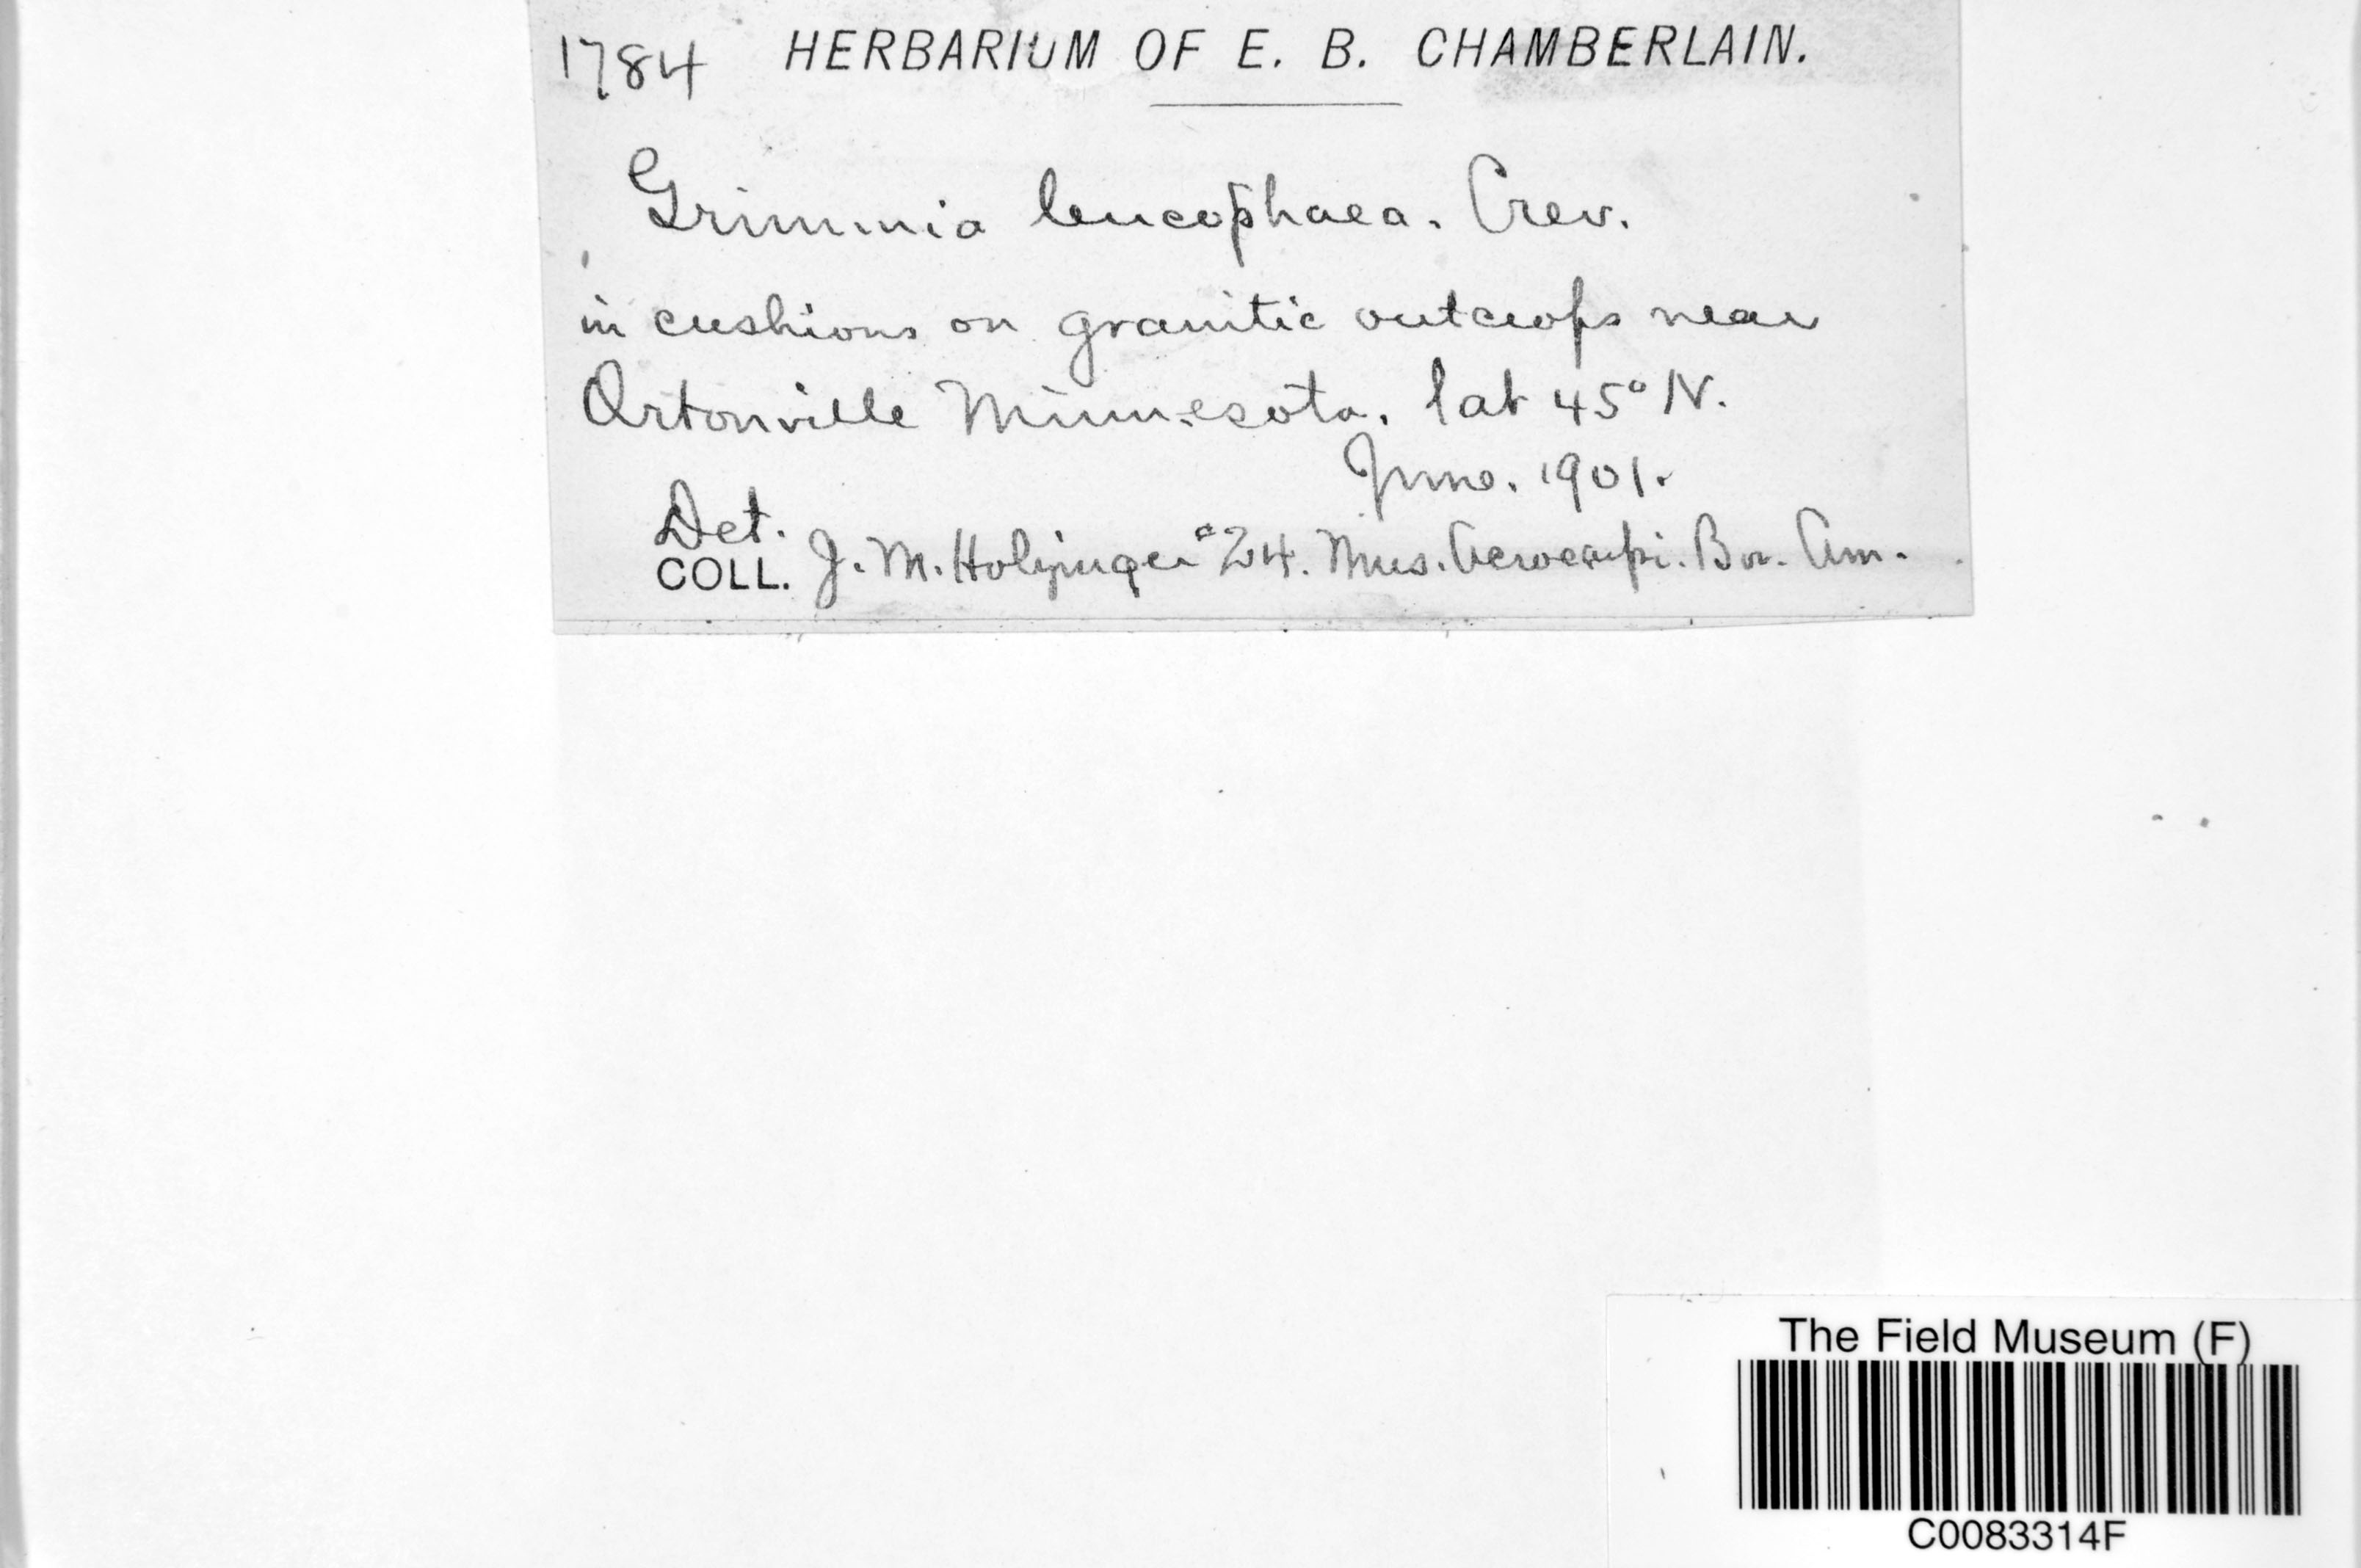 1784 HERBARIUM OF E. B. CHAMBERLAIN.
Grimmia leucophaea. Grev.
in cushions on granitic outcrops near
Ortonville Minnesota. lat 45° N.
June. 1901.
Det.
COLL. J. M. Holzinger #24. Mus. Acrocarpi. Bor. Am.
The Field Museum (F)
C0083314F